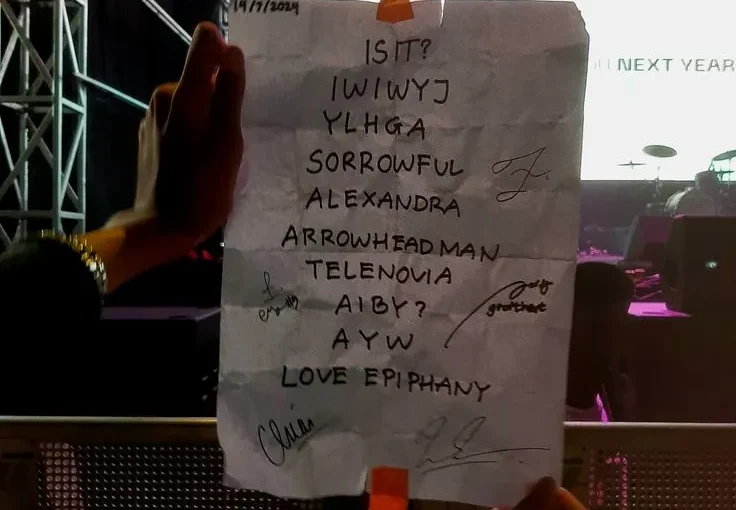 19/7/2024
IS IT?
IWIWYJ
YLHGA
SORROWFUL
ALEXANDRA
ARROWHEAD MAN
TELENOVIA
AIBY?
AYW
LOVE EPIPHANY
NEXT YEAR